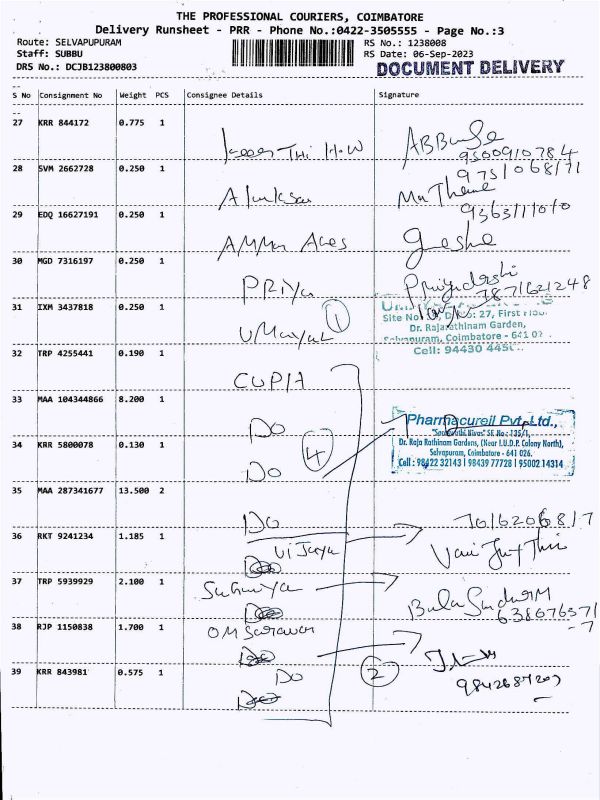 THE PROFESSIONAL COURIERS, COIMBATORE
Delivery Runsheet - PRR - Phone No.:0422-3505555 - Page No.:3
Route: SELVAPUPURAM
RS No.: 1238008
Staff: SUBBU
RS Date: 06-Sep-2023
DRS No.: DCJB123800803
DOCUMENT DELIVERY
S No Consignment No Weight PCS Consignee Details Signature
27 KRR 844172 0.775 1
9500910784
28 SVM 2662728 0.250 1
9751068171
29 EDQ 16627191 0.250 1
AMMan
30 MGD 7316197 0.250 1
PRiya Priyadarshi
7871621248
31 IXM 3437818 0.250 1
UMayal 1
27, First
Dr. Rajarathinam Garden,
Coimbatore - 641 02
Cell: 94430
32 TRP 4255441 0.190 1
CUPIA
33 MAA 104344866 8.200 1
DO
Pharmacureil Pvt. Ltd.,
SF. No.: 135/1,
34 KRR 5800078 0.130 1
Dr. Raja Rathinam Gardens, (Near I.U.D.P. Colony North),
Selvapuram, Coimbatore - 641 026.
Cell : 98422 32143 | 98439 77728 | 95002 14314
DO 4
35 MAA 287341677 13.500 2
DO
7016206817
36 RKT 9241234 1.185 1
Vijaya
37 TRP 5939929 2.100 1
38 RJP 1150838 1.700 1
OM Saravan
39 KRR 843981 0.575 1
DO 2